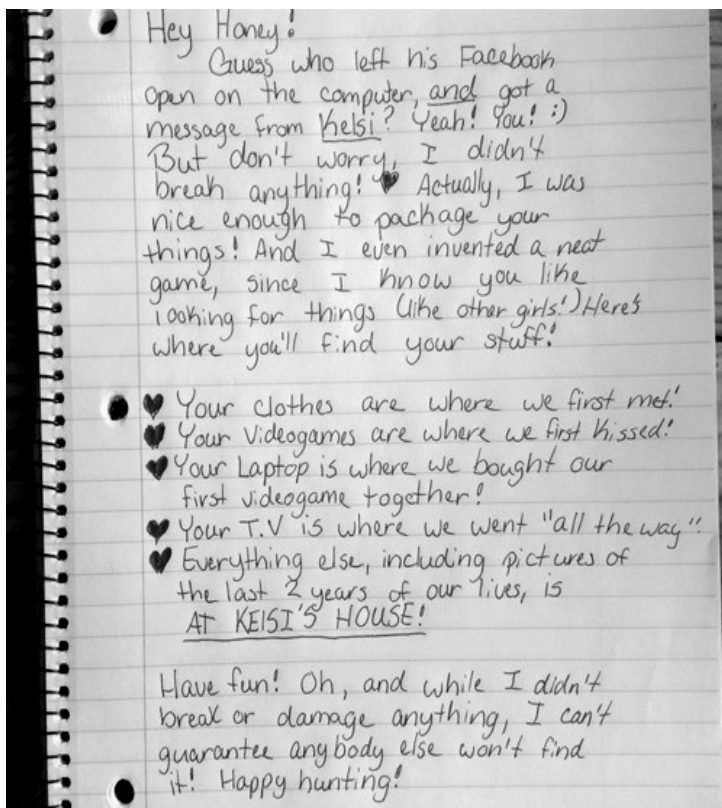 Hey Honey!
Guess who left his Facebook
open on the computer, and got a
message from Kelsi? Yeah! You! :)
But don't worry, I didn't
break anything! ♥ Actually, I was
nice enough to package your
things! And I even invented a neat
game, since I know you like
looking for things (like other girls!) Here's
where you'll find your stuff!
♥ Your clothes are where we first met!
♥ Your Videogames are where we first kissed!
♥ Your Laptop is where we bought our
first videogame together!
♥ Your T.V is where we went "all the way".
♥ Everything else, including pictures of
the last 2 years of our lives, is
AT KElSI'S HOUSE!
Have fun! Oh, and while I didn't
break or damage anything, I can't
guarantee anybody else won't find
it! Happy hunting!